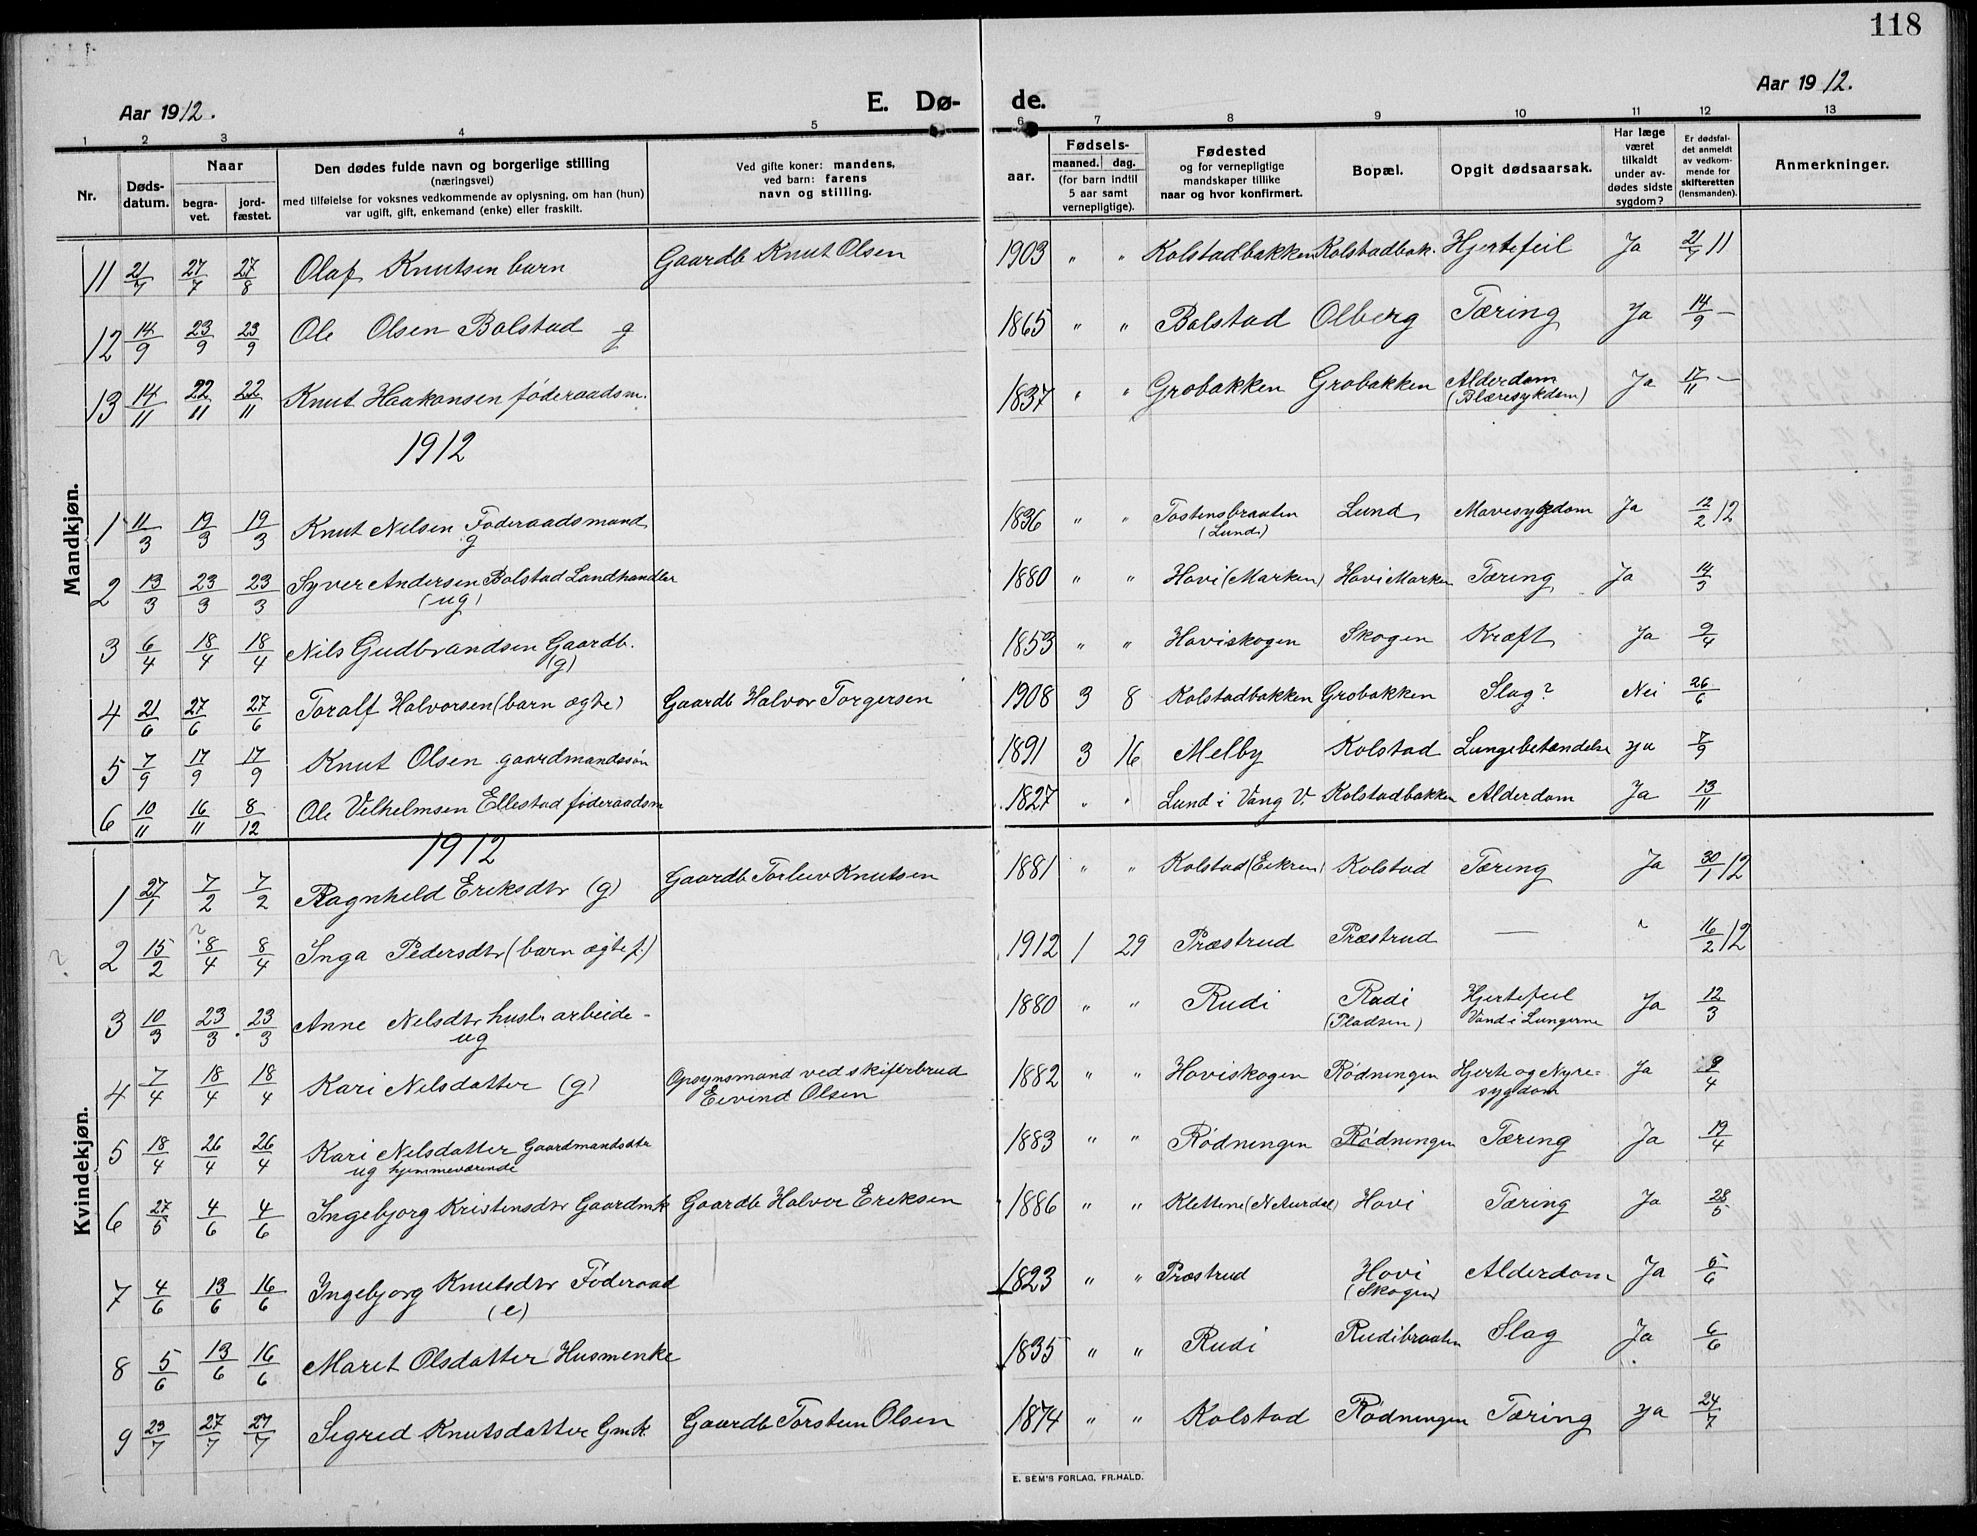 118
Aar 1912. E. Dø- de. Aar 1912.
1 2 3 4 5 6 7 8 9 10 11 12 13
Nr.
Døds-datum.
Naar
begra-vet.
jord-fæstet.
Den dødes fulde navn og borgerlige stilling
(næringsvei)
med tilføielse for voksnes vedkommende av oplysning, om han (hun)
var ugift, gift, enkemand (enke) eller fraskilt.
Ved gifte koner: mandens,
ved barn: farens
navn og stilling.
aar.
Fødsels-
maaned. dag.
(for barn indtil
5 aar samt
vernepligtige).
Fødested
og for vernepligtige
mandskaper tillike
naar og hvor konfirmert.
Bopæl.
Opgit dødsaarsak.
Har læge
været
tilkaldt
under av-
dødes sidste
sygdom?
Er dødsfal-
det anmeldt
av vedkom-
mende for
skifteretten
(lensmanden).
Anmerkninger.
Mandkjøn.
11 21/7 27/7 27/8 Olaf Knutsen barn Gaardb Knut Olsen 1903 " " Kolstadbakken Kolstadbak. Hjertefeil Ja 21/7 11
12 14/9 23/9 23/9 Ole Olsen Bolstad g 1865 " " Bolstad Olberg Tæring Ja 14/9 –
13 14/11 22/11 22/11 Knut Haakonsen føderaadsm. 1837 " " Grobakken Grobakken Alderdom (Blæresykdom) Ja 17/11 –
1912
1 11/3 19/3 19/3 Knut Nilsen Føderaadsmand g 1836 " " Tostensbraaten (Lund) Lund Mavesygdom Ja 12/2 12
2 13/3 23/3 23/3 Syver Andersen Bolstad Landhandler (ug) 1880 " " Hovi (Marken) Hovi Marken Tæring Ja 14/3
3 6/4 18/4 18/4 Nils Gudbrandsen Gaardb. (g) 1853 " " Hoviskogen Skogen Kræft Ja 9/4
4 21/6 27/6 27/6 Toralf Halvorsen (barn ægte) Gaardb Halvor Torgersen 1908 3 8 Kolstadbakken Grobakken Slag? Nei 26/6
5 7/9 17/9 17/9 Knut Olsen gaardmandssøn 1891 3 16 Melby Kolstad Lungebetændelse ja 7/9
6 10/11 16/11 8/12 Ole Vilhelmsen Ellestad føderaadsm 1827 " " Lund i Vang V. Kolstadbakken Alderdom Ja 13/11
Kvindekjøn.
1912
1 27/1 7/2 7/2 Ragnhild Eriksdtr (g) Gaardb Torleiv Knutsen 1881 " " Kolstad (Eikren) Kolstad Tæring Ja 30/1 12
? 2 15/2 ? 8/4 8/4 Inga Pedersdtr (barn ægtef.) 1912 1 29 Præstrud Præstrud — " 16/2 12
3 10/3 23/3 23/3 Anne Nilsdtr husl. arbeide - ug 1880 " " Rudi Rudi (Pladsen) Hjertefeil Vand i Lungerne Ja 12/3
4 7/4 18/4 18/4 Kari Nilsdatter (g) Opsynsmand ved skiferbrud Eivind Olsen 1882 " " Hoviskogen Rødningen Hjerte og Nyre= sygdom Ja 9/4
5 18/4 26/4 26/4 Kari Nilsdatter Gaardmandsdtr ug hjemmeværende 1883 " " Rødningen Rødningen Tæring Ja 19/4
6 27/5 4/6 4/6 Ingebjorg Kristensdtr Gaardmk Gaardb Halvor Eriksen 1886 " " Klettene (N Aurdal) Hovi Tæring Ja 28/5
7 4/6 13/6 16/6 Ingebjorg Knutsdtr Føderaad (e) 1823 " " Præstrud Hovi (Skogen) Alderdom Ja 5/6
8 5/6 13/6 16/6 Marit Olsdatter Husmenke 1835 " " Rudi Rudibraaten Slag Ja 6/6
9 23/7 27/7 27/7 Sigrid Knutsdatter Gmk. Gaardb Torstein Olsen 1874 " " Kolstad Rødningen Tæring ja 24/7
E. SEM'S FORLAG, FR.HALD.